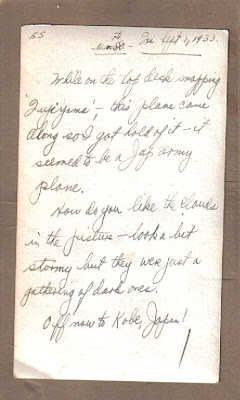 55 Fri Sept 1, 1933.
While on the top deck snapping
'Fujiyama', - this plane came
along so I got hold of it - it
seemed to be a Jap army
plane.
How do you like the clouds
in the picture - look a bit
stormy but they were just a
gathering of dark ones.
Off now to Kobe, Japan!